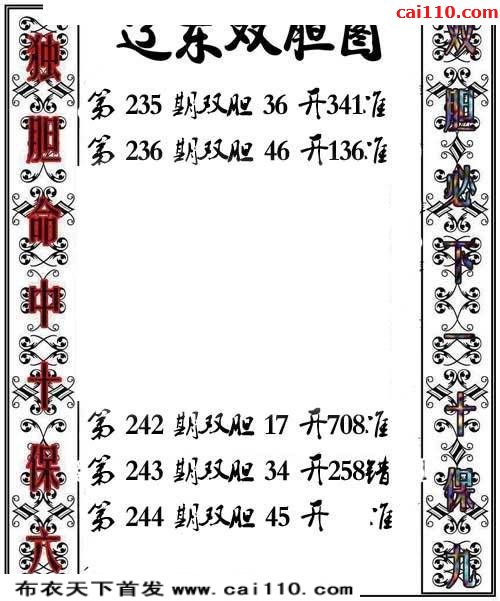 cai110.com
辽东双胆图
独胆命中十保六
第 235 期双胆 36 开341准
第 236 期双胆 46 开136准
第 242 期双胆 17 开708准
第 243 期双胆 34 开258错
第 244 期双胆 45 开 准
双胆必下二十保九
布衣天下首发 www.cai110.com